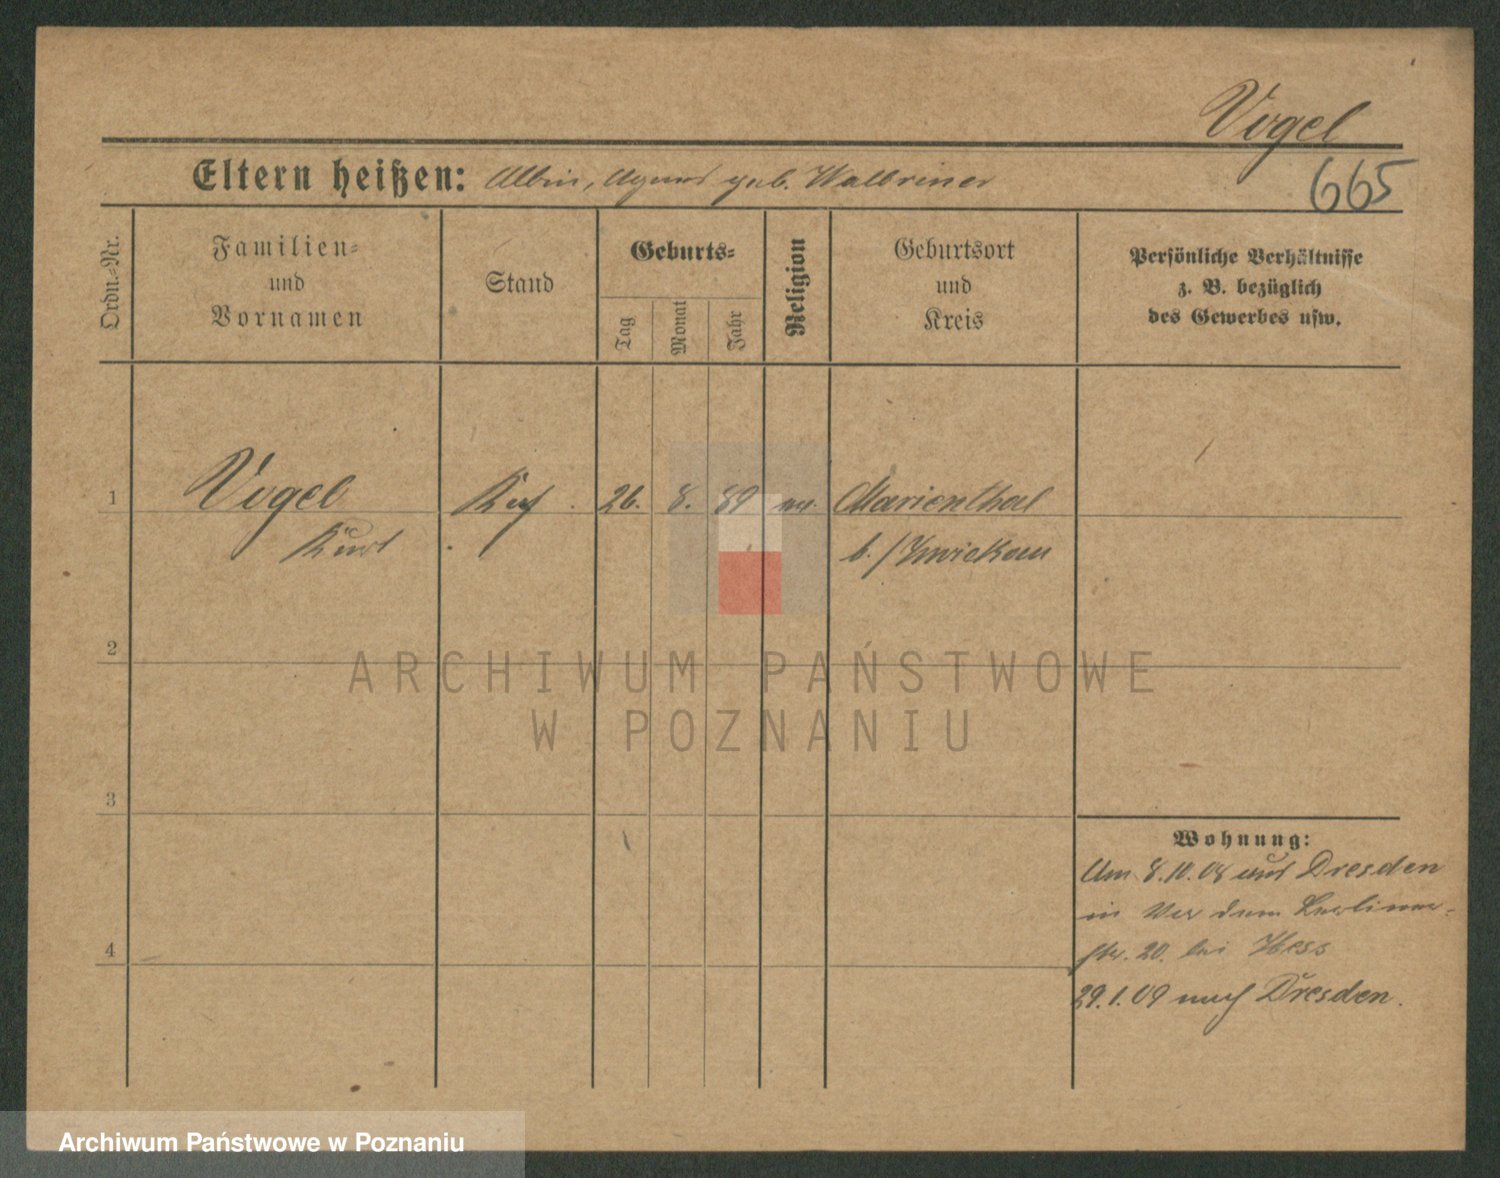 Vogel
Eltern heißen: Albin, Agnes geb. Walbriner
665
Ordn.-Nr.
Familien-
und
Vornamen
Stand
Geburts-
Tag
Monat
Jahr
Religion
Geburtsort
und
Kreis
Persönliche Verhältnisse
z. B. bezüglich
des Gewerbes usw.
1
Vogel
Kurt
26. 8. 89
Marienthal
b./Zwickau
2
3
4
ARCHIWUM PAŃSTWOWE
W POZNANIU
Wohnung:
8.10.08 aus Dresden
in Vor dem Berliner-
str. 20. bei Hess
29.1.09 nach Dresden.
Archiwum Państwowe w Poznaniu